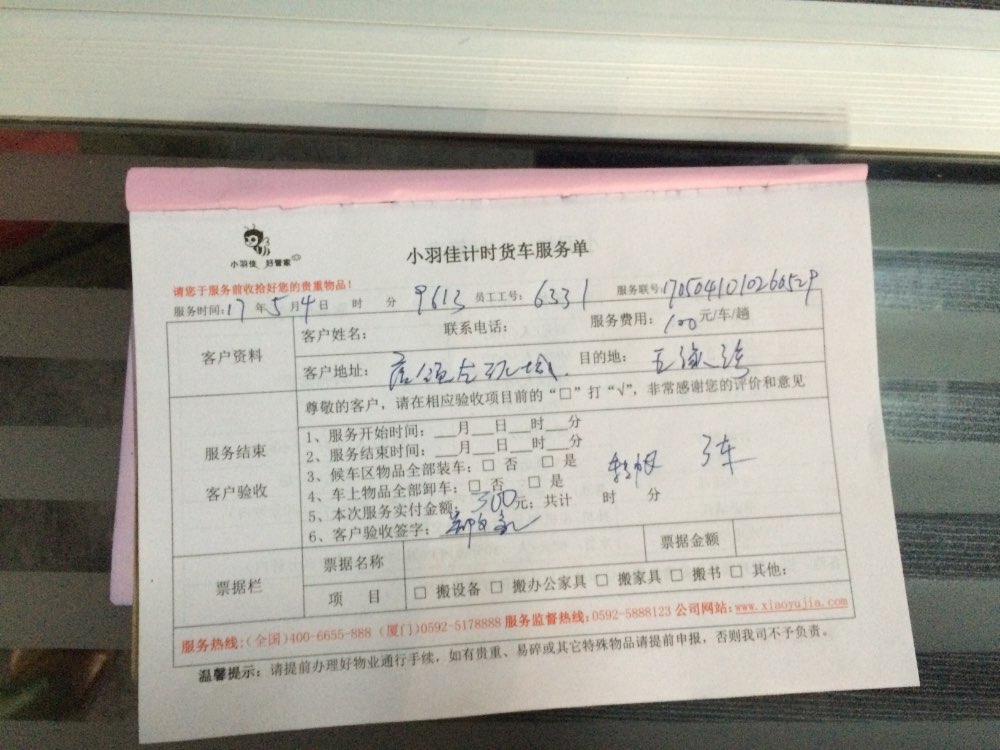 小羽佳 好管家
小羽佳计时货车服务单
请您于服务前收拾好您的贵重物品！
服务时间：17年5月4日 时 分 9613 员工工号：6331 服务联号：1705041010260529
客户资料
客户姓名： 联系电话： 服务费用：100元/车/趟
客户地址： 目的地：
服务结束
客户验收
尊敬的客户，请在相应验收项目前的“□”打“√”，非常感谢您的评价和意见
1、服务开始时间：___月___日___时___分
2、服务结束时间：___月___日___时___分
3、候车区物品全部装车：□ 否 □ 是
4、车上物品全部卸车：□ 否 □ 是
5、本次服务实付金额：300元；共计 时 分
3车
6、客户验收签字：
票据栏
票据名称 票据金额
项 目 □ 搬设备 □ 搬办公家具 □ 搬家具 □ 搬书 □ 其他：
服务热线：(全国)400-6655-888 (厦门)0592-5178888 服务监督热线：0592-5888123 公司网站：www.xiaoyujia.com
温馨提示：请提前办理好物业通行手续，如有贵重、易碎或其它特殊物品请提前申报，否则我司不予负责。